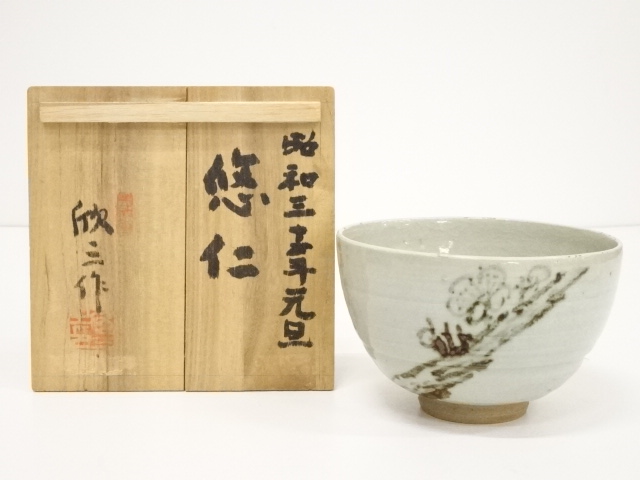 昭和三十三年元旦
悠仁
欣三作